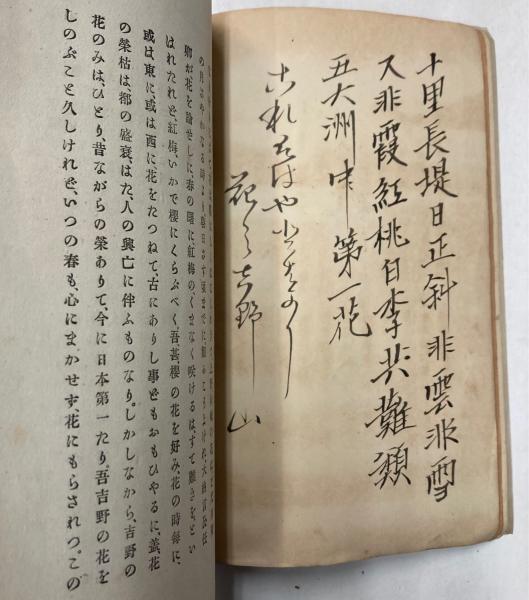 十里長堤日正斜 非雲非雪
又非霞 紅桃白李共難類
五大洲中第一花
吉野山
大納言公任
卿が花を論ぜしに、春の曙に、紅梅の、くまなく咲けるは、すて難きを、とい
はれたれど、紅梅、いかで櫻にくらぶべく、吾、甚、櫻の花を好み、花の時毎に、
或は東に、或は西に花をたつねて、古にありし事どもおもひやるに、蓋、花
の榮枯は、都の盛衰、はた、人の興亡に伴ふものなり。しかしながら、吉野の
花のみは、ひとり、昔ながらの榮ありて、今に日本第一たり。吾吉野の花を
しのぶこと久しけれど、いつの春も、心にまかせず、花にもらされつ。この